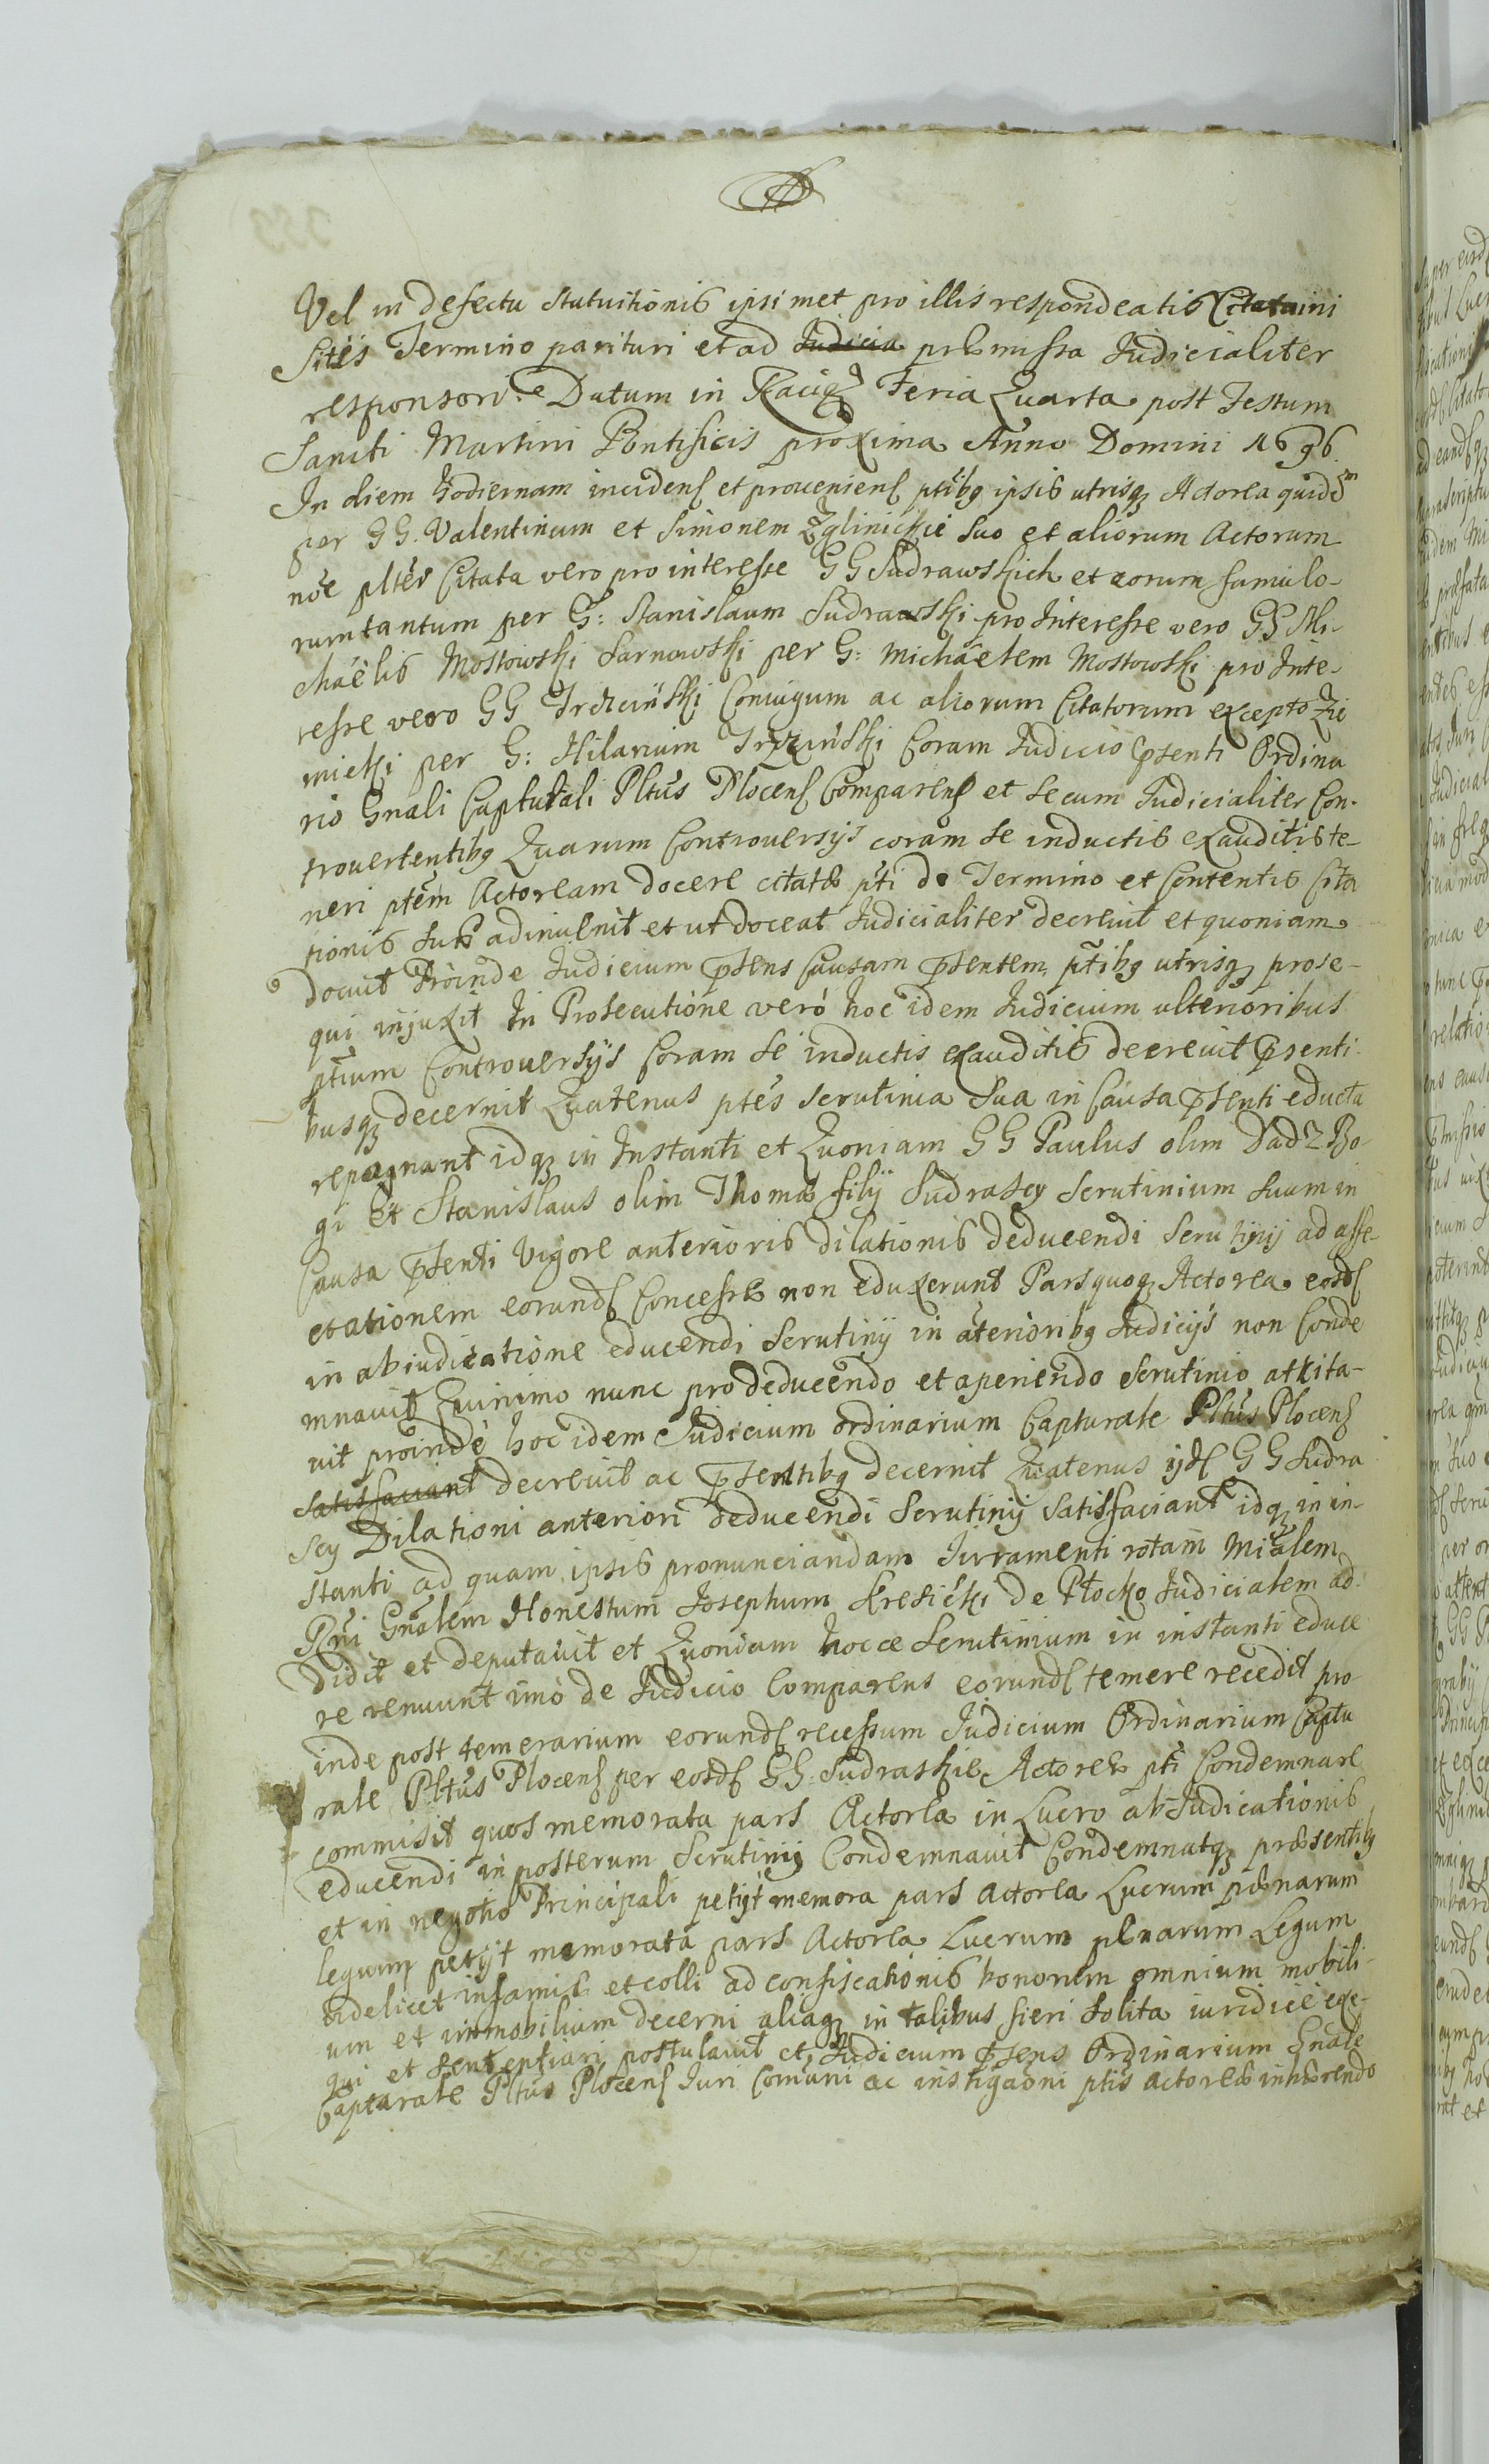 Vel in defectu statuitionis ipsimet pro illis respondeatis
sitis Termino parituri et ad Judicia præmissa Judicialiter
responsori. Datum in Raciąż Feria Quarta post Festum
Sancti Martini Pontificis proxima Anno Domini 1696.
In diem hodiernam incidens et proueniens ptibq ipsis utrisq Actorea quidem
per GG. Valentinum et Simonem Zglinickie suo et aliorum Actorum
noe plter Citata vero pro interesse GG Sudrawskich et eorum famulo-
rum tantum per G: Stanislaum Sudrawski pro Interesse vero GG Mi-
chaëlis Mostowski Sarnowski per G: Michaëlem Mostowski pro Inte-
resse vero GG Trzciński Coniugum ac aliorum Citatorum excepto Zie
micki per G: Hilarium Trzcinski Coram Judicio psenti Ordina
rio Gnali Capturali Pltus Plocens Comparens et secum Judicialiter Con-
trouertentibq Quarum Controuersijs coram se inductis exauditis te-
neri ptem Actoream docere citatæ pti de Termino et Contentis Cita
tionis suæ adinuenit et ut doceat Judicialiter decreuit et quoniam
docuit Proinde Judicium psens Causam psentem ptibq utrisq prose-
qui injuxit In Prosecutione vero hoc idem Judicium ulterioribus
ptium Controuersijs Coram se inductis exauditis decreuit psenti-
busq decernit Quatenus ptes Scrutinia sua in Causa psenti educta
reponant idq in Instanti et Quoniam GG Paulus olim Dadzbo-
gi Et Stanislaus olim Thomæ filij Sudrascy Scrutinium suum in
Causa psenti Vigore anterioris dilationis deducendi Scrutinij ad affe-
ctationem eorunds Concessæ non eduxerunt Pars quoq Actorea eosds
in abiudicatione educendi Scrutinij in aterioribq Judicijs non Conde
mnauit Quinimo nunc pro deducendo et aperiendo Scrutinio attita-
uit proinde hoc idem Judicium ordinarium Capturale Pltus Plocens
satisfaciant decreuit ac psentibq decernit Quatenus ijds GG Sudra
scy Dilationi anteriori deducendi Scrutinij satisfaciant idq in in-
stanti ad quam ipsis pronunciandam Jurramenti rotam Mialem
Rni Gnalem Honestum Josephum Kresicki de Płocko Judicialem ad-
didit et deputauit et Quoniam hocce Scrutinium in instanti educe
re renuunt imo de Judicio Comparens eorunds temere recedit pro
inde post temerarium eorunds recessum Judicium Ordinarium Captu
rale Pltus Plocens per eosds GG. Sudraskie Actoreæ pti Condemnare
commisit quos memorata pars Actorea in Lucro abJudicationis
educendi in posterum Scrutinij Condemnauit Condemnatq præsentibq
et in negotio Principali petijt memora pars Actorea Lucrum pænarum
legum petijt memorata pars Actorea Lucrum plnarum Legum
videlicet infamiæ et colli ad confiscationis bonorum omnium mobili-
um et immobilium decerni aliaq in talibus fieri solita iuridice exe-
qui et sententiari postulauit et Judicium psens Ordinarium Gnale
Capturale Pltus Plocens Juri Comuni ac instigaoni ptis actoreæ inhærendo